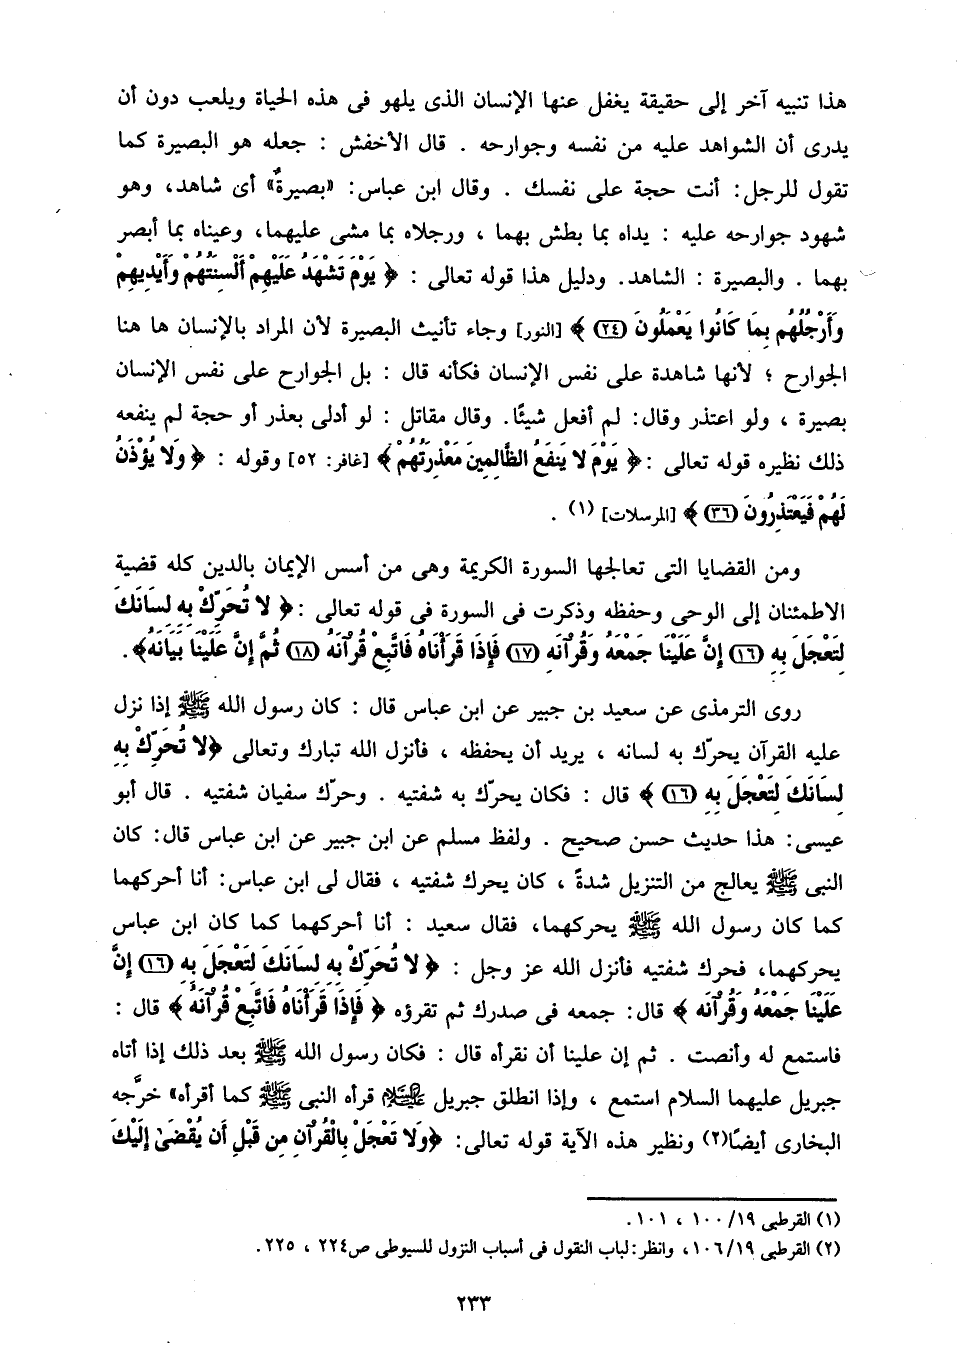 هذا تنبيه آخر إلى حقيقة يغفل عنها الإنسان الذى يلهو فى هذه الحياة ويلعب دون أن
يدرى أن الشواهد عليه من نفسه وجوارحه . قال الأخفش : جعله هو البصيرة كما
تقول للرجل: أنت حجة على نفسك . وقال ابن عباس: «بصيرةٌ» أى شاهد، وهو
شهود جوارحه عليه : يداه بما بطش بهما ، ورجلاه بما مشى عليهما، وعيناه بما أبصر
بهما . والبصيرة : الشاهد. ودليل هذا قوله تعالى : ﴿ يَوْمَ تَشْهَدُ عَلَيْهِمْ أَلْسِنَتُهُمْ وَأَيْدِيهِمْ
وَأَرْجُلُهُم بِمَا كَانُوا يَعْمَلُونَ (٢٤) ﴾ [النور] وجاء تأنيث البصيرة لأن المراد بالإنسان ها هنا
الجوارح ؛ لأنها شاهدة على نفس الإنسان فكأنه قال : بل الجوارح على نفس الإنسان
بصيرة ، ولو اعتذر وقال: لم أفعل شيئًا. وقال مقاتل : لو أدلى بعذر أو حجة لم ينفعه
ذلك نظيره قوله تعالى :﴿ يَوْمَ لا يَنفَعُ الظَّالِمِينَ مَعْذِرَتُهُمْ ﴾ [غافر: ٥٢] وقوله : ﴿ وَلا يُؤْذَنُ
لَهُمْ فَيَعْتَذِرُونَ (٣٦) ﴾ [المرسلات] (١) .
ومن القضايا التى تعالجها السورة الكريمة وهى من أسس الإيمان بالدين كله قضية
الاطمئنان إلى الوحى وحفظه وذكرت فى السورة فى قوله تعالى :﴿ لا تُحَرِّكْ بِهِ لِسَانَكَ
لِتَعْجَلَ بِهِ (١٦) إِنَّ عَلَيْنَا جَمْعَهُ وَقُرْآنَه (١٧) فَإِذَا قَرَأْنَاهُ فَاتَّبِعْ قُرْآنَهُ (١٨) ثُمَّ إِنَّ عَلَيْنَا بَيَانَهُ﴾.
روى الترمذى عن سعيد بن جبير عن ابن عباس قال : كان رسول الله ﷺ إذا نزل
عليه القرآن يحرّك به لسانه ، يريد أن يحفظه ، فأنزل الله تبارك وتعالى ﴿لا تُحَرِّكْ بِهِ
لِسَانَكَ لِتَعْجَلَ بِهِ (١٦) ﴾ قال : فكان يحرّك به شفتيه . وحرّك سفيان شفتيه . قال أبو
عيسى: هذا حديث حسن صحيح . ولفظ مسلم عن ابن جبير عن ابن عباس قال: كان
النبى ﷺ يعالج من التنزيل شدةً ، كان يحرك شفتيه ، فقال لى ابن عباس: أنا أحركهما
كما كان رسول الله ﷺ يحركهما، فقال سعيد : أنا أحركهما كما كان ابن عباس
يحركهما، فحرك شفتيه فأنزل الله عز وجل : ﴿ لا تُحَرِّكْ بِهِ لِسَانَكَ لِتَعْجَلَ بِهِ (١٦) إِنَّ
عَلَيْنَا جَمْعَهُ وَقُرْآنَه ﴾ قال: جمعه فى صدرك ثم تقرؤه ﴿ فَإِذَا قَرَأْنَاهُ فَاتَّبِعْ قُرْآنَهُ ﴾ قال :
فاستمع له وأنصت . ثم إن علينا أن نقرأه قال : فكان رسول الله ﷺ بعد ذلك إذا أتاه
جبريل عليهما السلام استمع ، وإذا انطلق جبريل عليه السلام قرأه النبى ﷺ كما أقرأه» خرَّجه
البخارى أيضًا(٢) ونظير هذه الآية قوله تعالى: ﴿وَلا تَعْجَلْ بِالْقُرْآنِ مِن قَبْلِ أَن يُقْضَىٰ إِلَيْكَ
(١) القرطبى ١٩/ ١٠٠ ، ١٠١ .
(٢) القرطبى ١٩/ ١٠٦، وانظر: لباب النقول فى أسباب النزول للسيوطى ص٢٢٤ ، ٢٢٥ .
٢٣٣